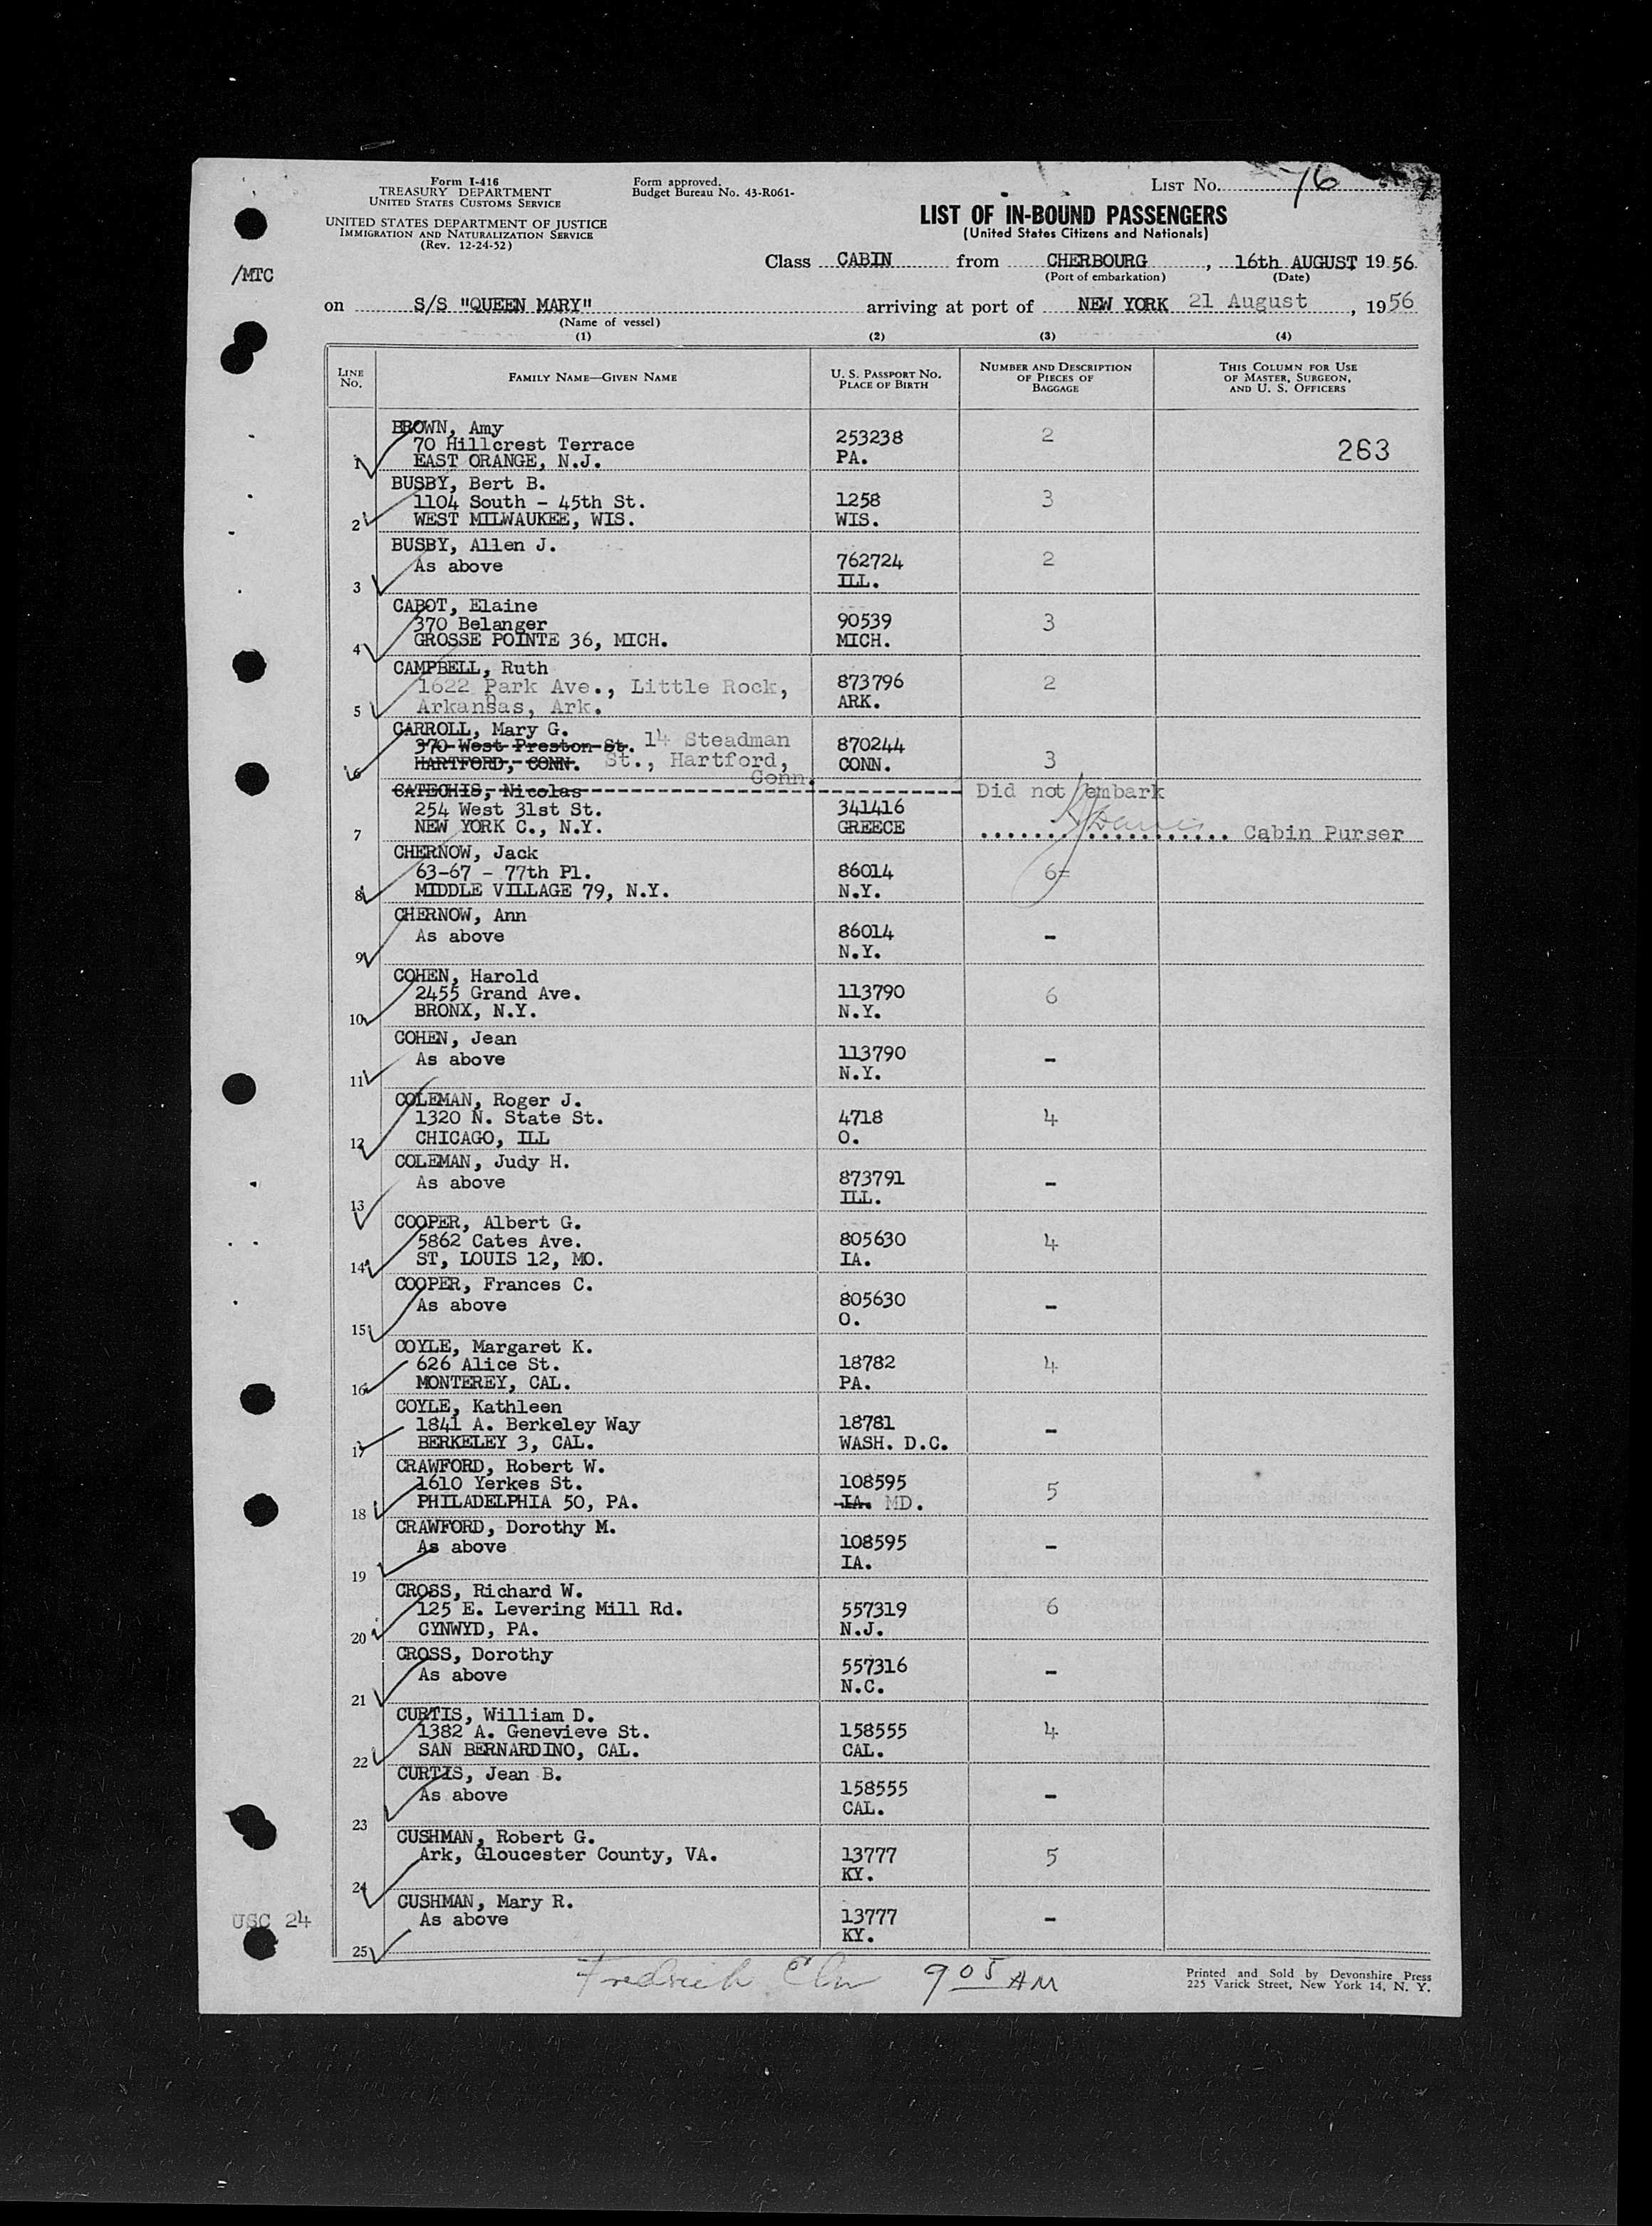 Form I-416
TREASURY DEPARTMENT
UNITED STATES CUSTOMS SERVICE
UNITED STATES DEPARTMENT OF JUSTICE
IMMIGRATION AND NATURALIZATION SERVICE
(Rev. 12-24-52)
Form approved.
Budget Bureau No. 43-R061-
LIST NO. 76
LIST OF IN-BOUND PASSENGERS
(United States Citizens and Nationals)
/MTC
Class CABIN from CHERBOURG, 16th AUGUST 1956
(Port of embarkation) (Date)
on S/S "QUEEN MARY" arriving at port of NEW YORK 21 August, 1956
(Name of vessel)
(1) (2) (3) (4)
LINE NO. FAMILY NAME—GIVEN NAME U. S. PASSPORT NO. PLACE OF BIRTH NUMBER AND DESCRIPTION OF PIECES OF BAGGAGE THIS COLUMN FOR USE OF MASTER, SURGEON, AND U. S. OFFICERS
BROWN, Amy
70 Hillcrest Terrace 253238 2 263
1 EAST ORANGE, N.J. PA.
BUSBY, Bert B.
1104 South - 45th St. 1258 3
2 WEST MILWAUKEE, WIS. WIS.
BUSBY, Allen J.
As above 762724 2
3 ILL.
CABOT, Elaine
370 Belanger 90539 3
4 GROSSE POINTE 36, MICH. MICH.
CAMPBELL, Ruth
1622 Park Ave., Little Rock, 873796 2
5 Arkansas, Ark. ARK.
CARROLL, Mary G.
370 West Preston St. 14 Steadman 870244
6 HARTFORD, CONN. St., Hartford, CONN. 3
Conn.
CATECHIS, Nicolas Did not embark
254 West 31st St. 341416
7 NEW YORK C., N.Y. GREECE Cabin Purser
CHERNOW, Jack
63-67 - 77th Pl. 86014 6=
8 MIDDLE VILLAGE 79, N.Y. N.Y.
CHERNOW, Ann
As above 86014 -
9 N.Y.
COHEN, Harold
2455 Grand Ave. 113790 6
10 BRONX, N.Y. N.Y.
COHEN, Jean
As above 113790 -
11 N.Y.
COLEMAN, Roger J.
1320 N. State St. 4718 4
12 CHICAGO, ILL O.
COLEMAN, Judy H.
As above 873791 -
13 ILL.
COOPER, Albert G.
5862 Cates Ave. 805630 4
14 ST, LOUIS 12, MO. IA.
COOPER, Frances C.
As above 805630 -
15 O.
COYLE, Margaret K.
626 Alice St. 18782 4
16 MONTEREY, CAL. PA.
COYLE, Kathleen
1841 A. Berkeley Way 18781 -
17 BERKELEY 3, CAL. WASH. D.C.
CRAWFORD, Robert W.
1610 Yerkes St. 108595 5
18 PHILADELPHIA 50, PA. IA. MD.
CRAWFORD, Dorothy M.
As above 108595 -
19 IA.
CROSS, Richard W.
125 E. Levering Mill Rd. 557319 6
20 CYNWYD, PA. N.J.
CROSS, Dorothy
As above 557316 -
21 N.C.
CURTIS, William D.
1382 A. Genevieve St. 158555 4
22 SAN BERNARDINO, CAL. CAL.
CURTIS, Jean B.
As above 158555 -
23 CAL.
CUSHMAN, Robert G.
Ark, Gloucester County, VA. 13777 5
24 KY.
CUSHMAN, Mary R.
USC 24 As above 13777 -
25 KY.
905 AM
Printed and Sold by Devonshire Press
225 Varick Street, New York 14, N. Y.